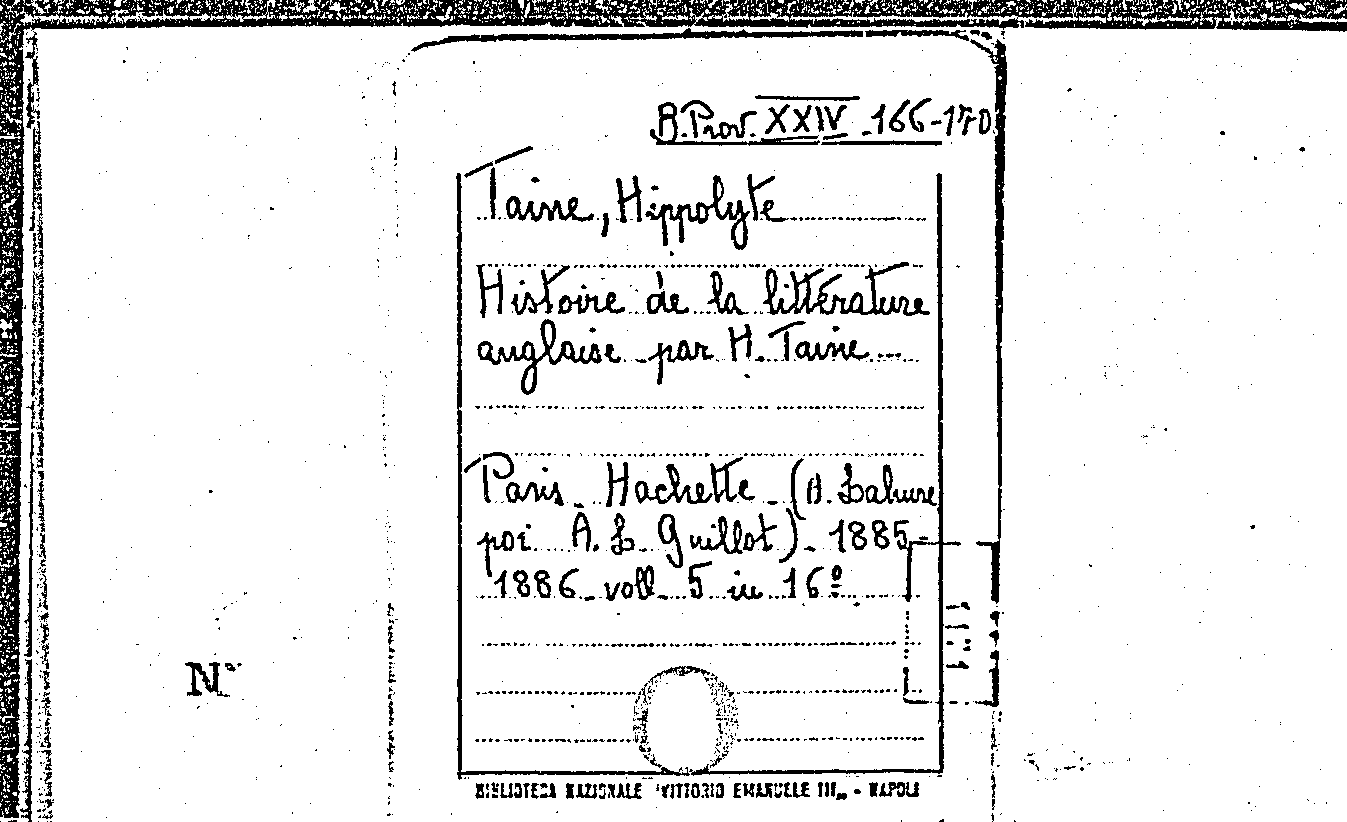 B. Prov. XXIV - 166-170
Taine, Hippolyte
Histoire de la littérature
anglaise par H. Taine...
Paris - Hachette - (A. Lahure
poi A. L. Guillot) - 1885-
1886 - voll. 5 in 16º
Nº
BIBLIOTECA NAZIONALE "VITTORIO EMANUELE III„ - NAPOLI